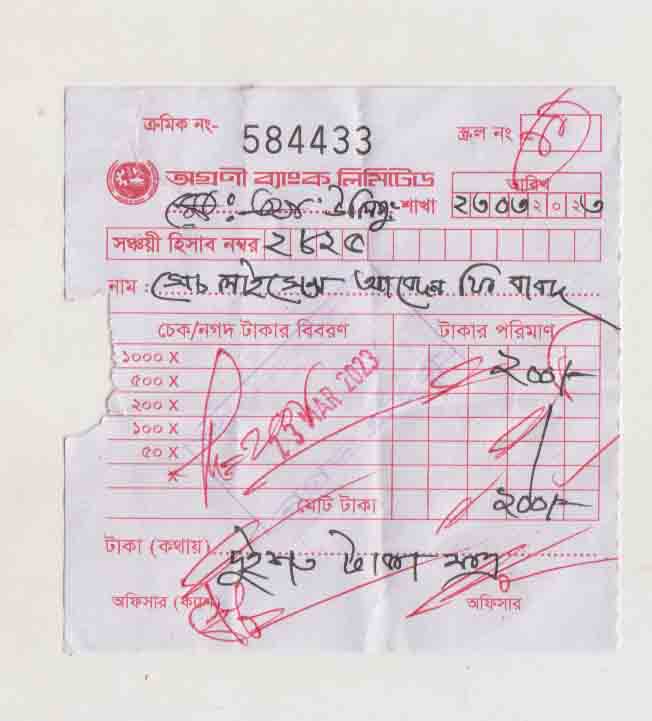 ক্রমিক নং- 584433 স্ক্রল নং
অগ্রণী ব্যাংক লিমিটেড তারিখ
শাখা ২০২৩
সঞ্চয়ী হিসাব নম্বর ২৮২৫
নাম : সেচ লাইসেন্স আবেদন ফি বাবদ
চেক/নগদ টাকার বিবরণ টাকার পরিমাণ
১০০০ X ২০০/-
৫০০ X
২০০ X
১০০ X
৫০ X
X
13 MAR 2023
মোট টাকা ২০০/-
টাকা (কথায়) দুইশত টাকা মাত্র
অফিসার (ক্যাশ) অফিসার